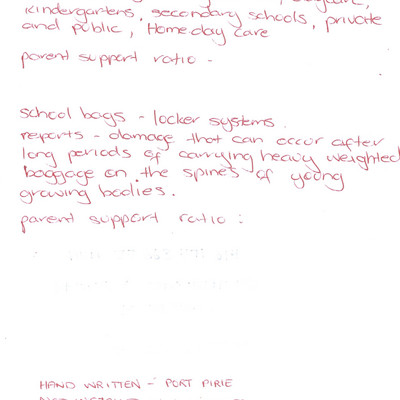 kindergartens, secondary schools, private
and public, Home day care
parent support ratio -
school bags - locker systems.
reports - damage that can occur after
long periods of carrying heavy weighted
baggage on the spines of young
growing bodies.
parent support ratio :
HAND WRITTEN - PORT PIRIE